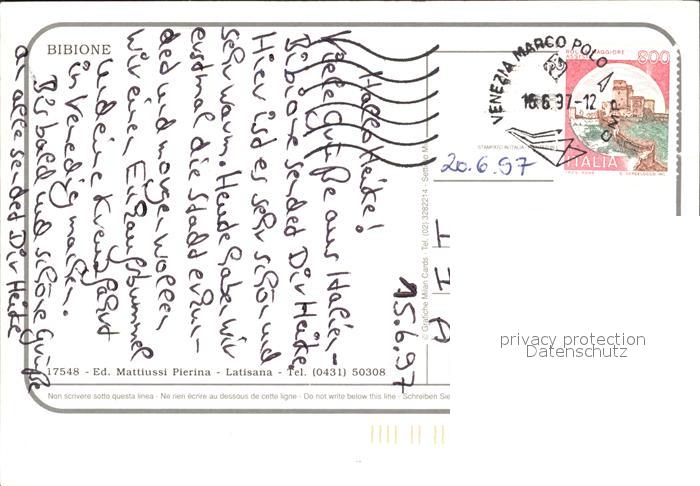 BIBIONE
15.6.97
Hallo Heike!
Viele Grüße aus Italien
Bibione sendet Dir Heike
Hier ist es sehr schön und
sehr warm. Heute haben wir
erstmal die Stadt erkun-
det und morgen wollen
wir einen Einkaufsbummel
und eine Kreuzfahrt
in Venedig machen.
Bis bald und schöne Grüße
an alle sendet Dir Heike
17548 - Ed. Mattiussi Pierina - Latisana - Tel. (0431) 50308
Non scrivere sotto questa linea · Ne rien écrire au dessous de cette ligne · Do not write below this line · Schreiben Sie
© Grafiche Milan Cards - Tel. (02) 3282214 - Settimo M
STAMPATO IN ITALIA
VENEZIA MARCO POLO
16.6.97-12
CMP
800
ITALIA
20.6.97
I I A
privacy protection
Datenschutz